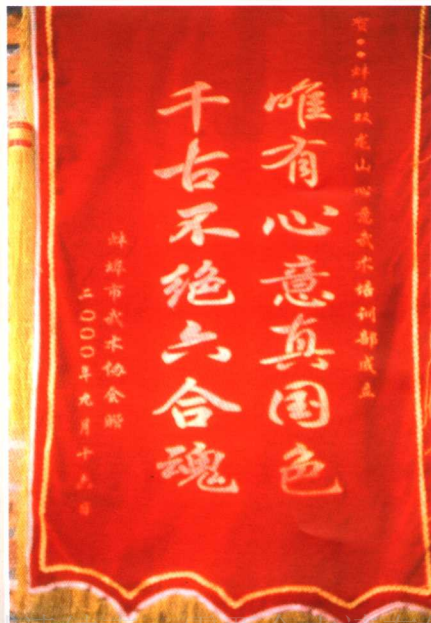 贺：蚌埠双龙山心意武术培训部成立
唯有心意真国色
千古不绝六合魂
蚌埠市武术协会赠
二〇〇〇年九月十六日